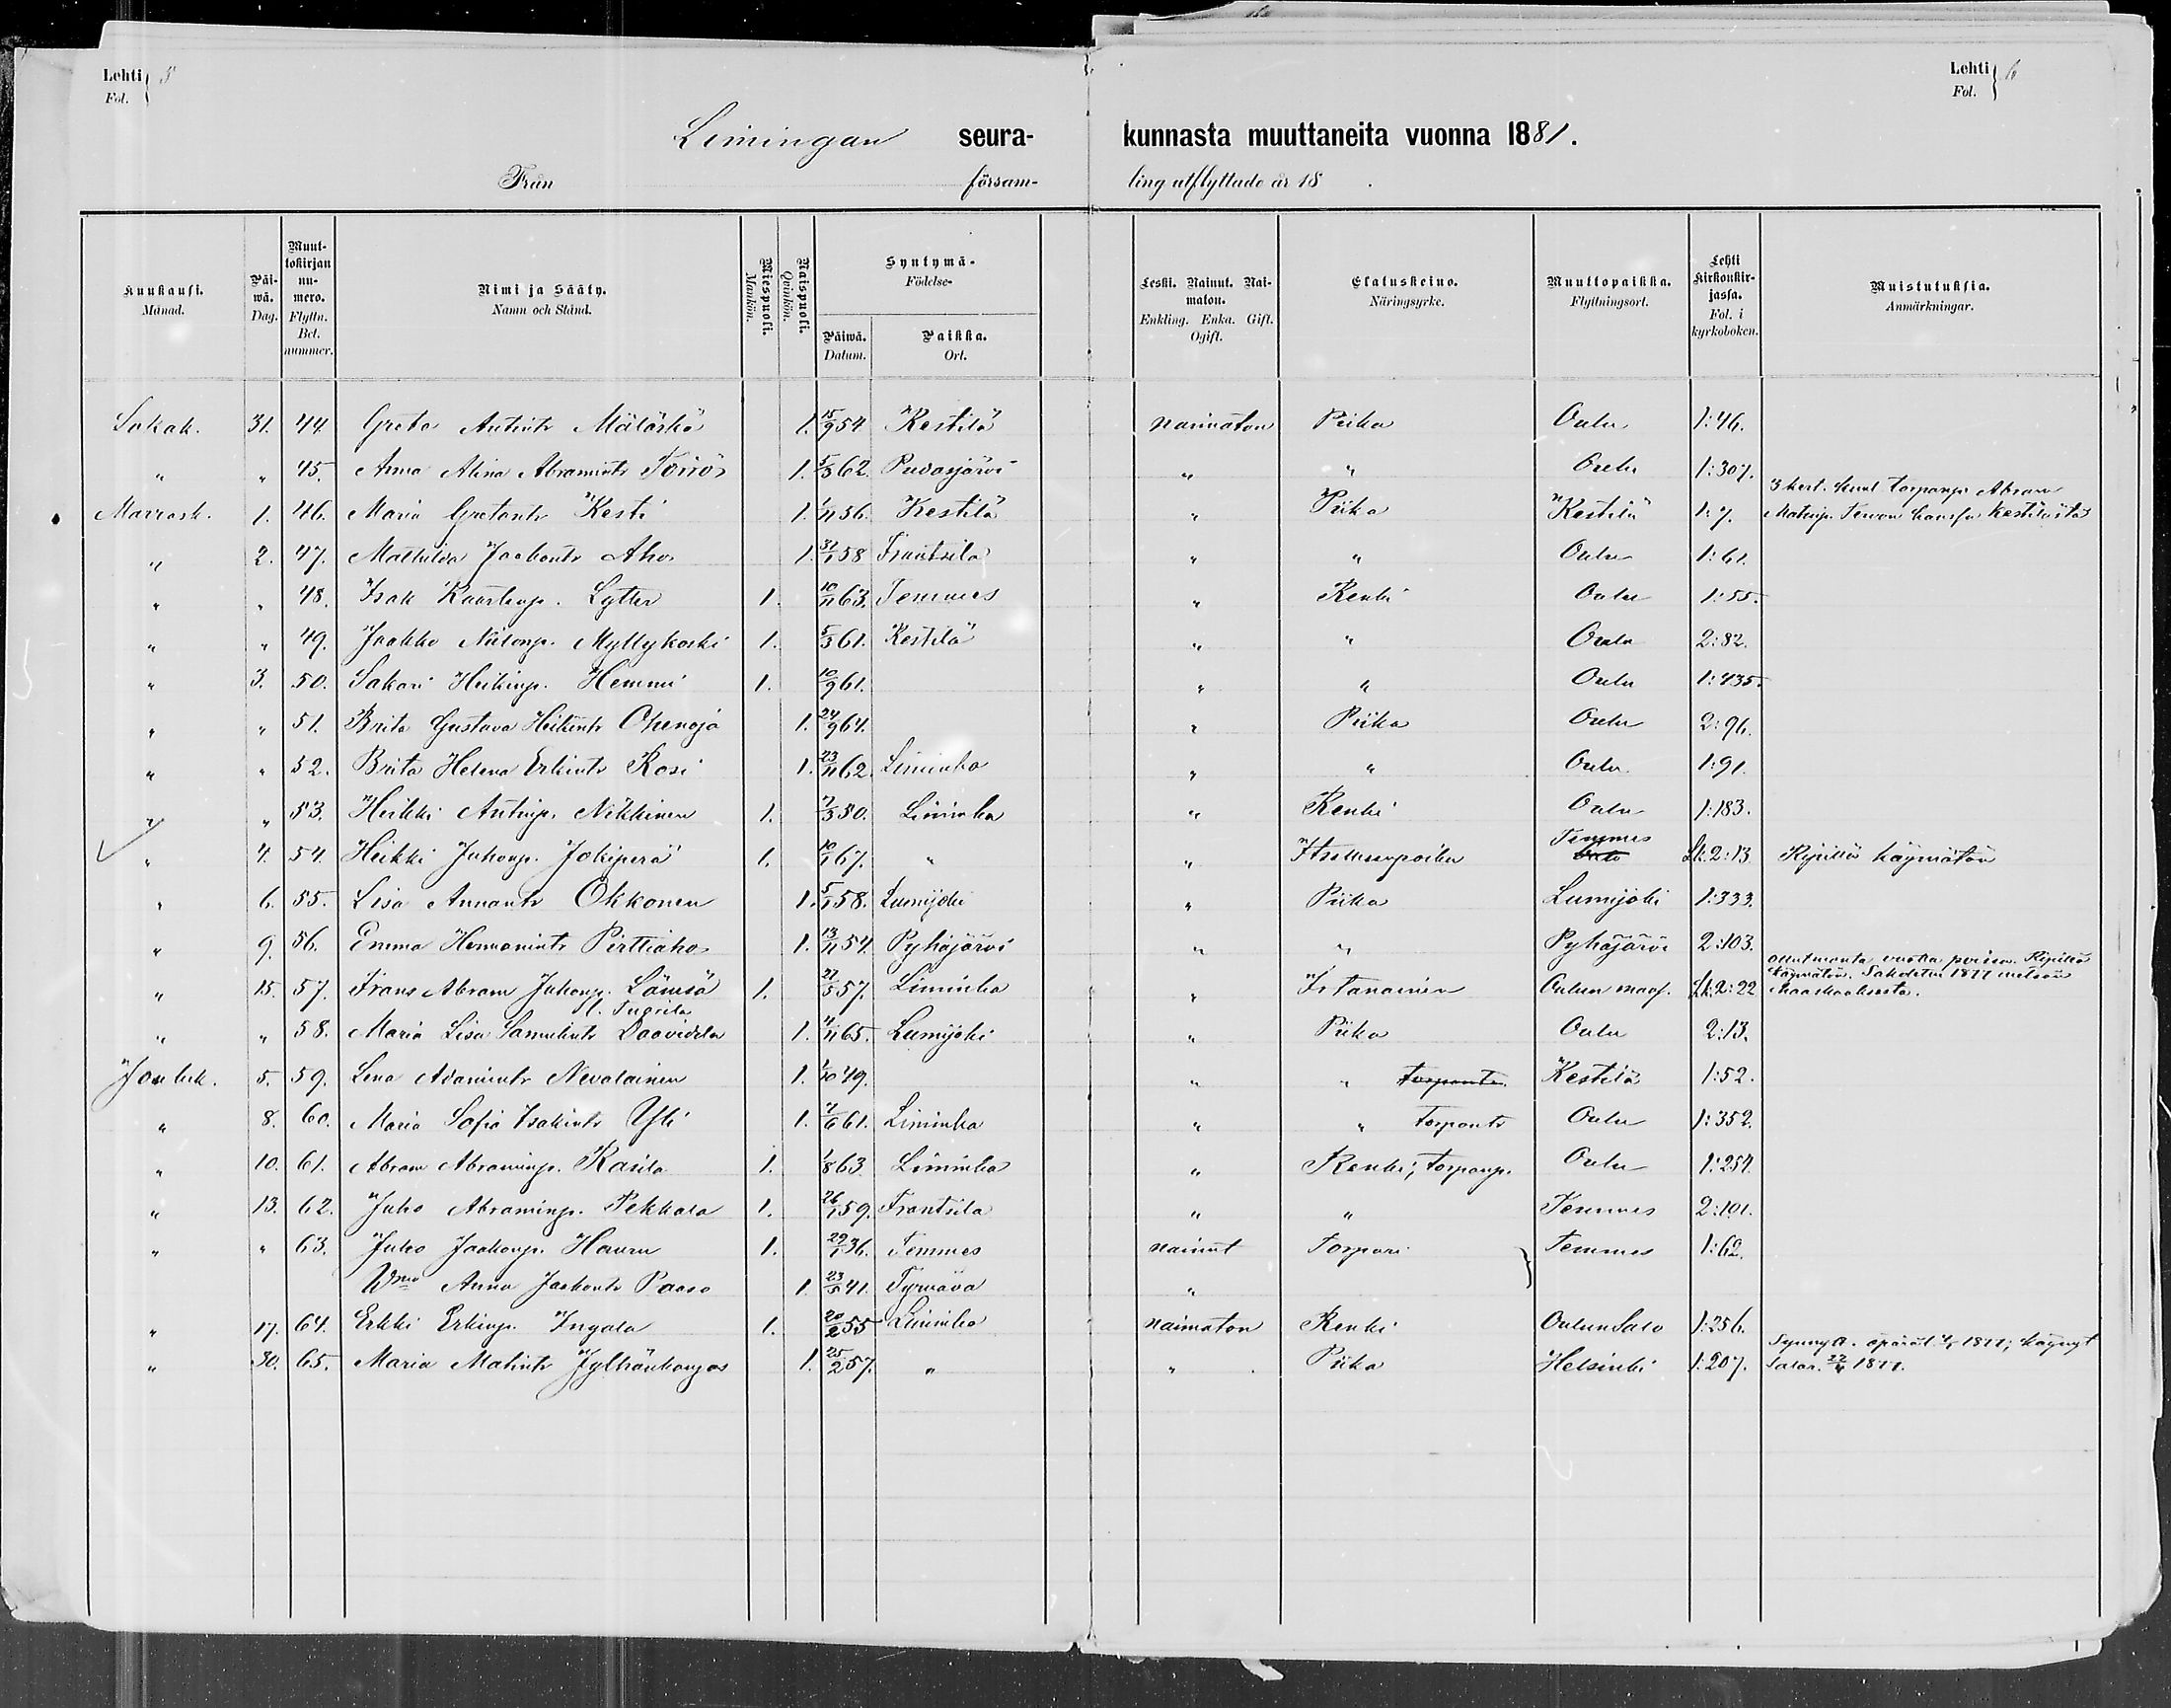 Lehti 5 Lehti 6
Fol. Fol.
Limingan seura- kunnasta muuttaneita vuonna 1881.
Från försam- ling utflyttade år 18 .
Kuukausi. Månad. Päi-wä. Dag. Muut-tokirjan nu-mero. Flyttn. Bet. nummer. Nimi ja Sääty. Namn och Stånd. Miespuoli. Mankön. Naispuoli. Qvinkön. Syntymä- Födelse- Päiwä. Datum. Paikka. Ort. Leski. Nainut. Nai-maton. Enkling. Enka. Gift. Ogift. Elatuskeino. Näringsyrke. Muuttopaikka. Flyttningsort. Lehti kirkonkir-jassa. Fol. i kyrkoboken. Muistutuksia. Anmärkningar.
Lokak. 31. 44. Greta Antintr Mäläskä 1. 15/9 54 Kestilä naimaton Piika Oulu 1:46.
" " 45. Anna Alina Abramintr Törrös 1. 5/3 62. Pudasjärvi " " Oulu 1:307.
Marrask. 1. 46. Maria Gretantr Kesti 1. 1/11 56. Kestilä " Piika Kestilä 1:7. Abram Kestilästä
" 2. 47. Mathilda Jaakontr Aho 1. 31/1 58 Frantsila " " Oulu 1:61.
" " 48. Isak Kaarlenp. Lytter 1. 10/11 63. Temmes " Renki Oulu 1:55.
" " 49. Jaakko Niilonp. Myllykoski 1. 5/3 61. Kestilä " " Oulu 2:82.
" 3. 50. Sakari Heikinp. Hemmi 1. 10/9 61. " " Oulu 1:435.
" " 51. Brita Gustava Heikintr Ohenoja 1. 24/9 64. " Piika Oulu 2:96.
" " 52. Brita Helena Erkintr Kosi 1. 23/11 62. Liminka " " Oulu 1:91.
" " 53. Heikki Antinp. Nikkinen 1. 7/3 30. Liminka " Renki Oulu 1:183.
" 4. 54. Heikki Juhonp. Jokiperä 1. 10/1 67. " " Temmes 2:13. Ripillä käymätön
" 6. 55. Lisa Annantr Okkonen 1. 5/1 58. Lumijoki " Piika Lumijoki 1:333.
" 9. 56. Emma Hermanintr Pirttiaho 1. 13/11 54. Pyhäjärvi " " Pyhäjärvi 2:103.
" 15. 57. Frans Abram Juhonp. Lämsä 1. 27/5 57. Liminka " Itsenäinen Oulun maas. 2:22 ollut monta vuotta poissa. Ripillä käymätön. 1877
" " 58. Maria Lisa Samulintr Daavidila 1. 4/11 65. Lumijoki " Piika Oulu 2:13.
Jouluk. 5. 59. Lena Adamintr Nevalainen 1. 1/10 49. " " torpantr. Kestilä 1:52.
" 8. 60. Maria Sofia Isakintr Yli 1. 7/6 61. Liminka " " torpantr Oulu 1:352.
" 10. 61. Abram Abraminp. Rasila 1. 1/8 63. Liminka " Renki, torpanp. Oulu 1:254.
" 13. 62. Juho Abraminp. Pekkala 1. 26/1 59. Frantsila " " Temmes 2:101.
" " 63. Juho Jaakonp. Hauru 1. 29/1 36. Temmes nainut Torpari Temmes 1:62.
Wmo Anna Jaakontr Paaso 1 23/5 41. Tyrnävä "
" 17. 64. Erkki Erkinp. Ingala 1. 20/2 55 Liminka naimaton Renki OulunSalo 1:256.
" 30. 65. Maria Matintr Jylhänkangas 1. 25/2 57. " " Piika Helsinki 1:207. 1877; käynyt 22/4 1877.